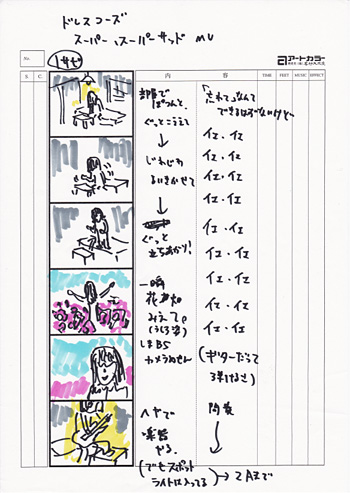 ドレスコーズ
スーパー、スーパーサッド MV
1サビ
No.
アートカラー
S. C. 内 容 TIME FEET MUSIC EFFECT
部屋で
ぽつんと、
ぐっとこらえて
↓
じわじわ
↓
ぐっと
立ちあがり!
↓
一瞬
花畑が
みえて。
(うしろ姿)
カメラめせん
ヘヤで
楽器
やる。
(でもスポット
ライトは入ってる)
「忘れて」なんて
できるはずないけど
イエ・イエ
イエ・イエ
イエ・イエ
イエ・イエ
イエ・イエ
イエ・イエ
イエ・イエ
イエ・イエ
イエ・イエ
(ギターだって
弾けるさ)
間奏
↓
→ 2Aまで